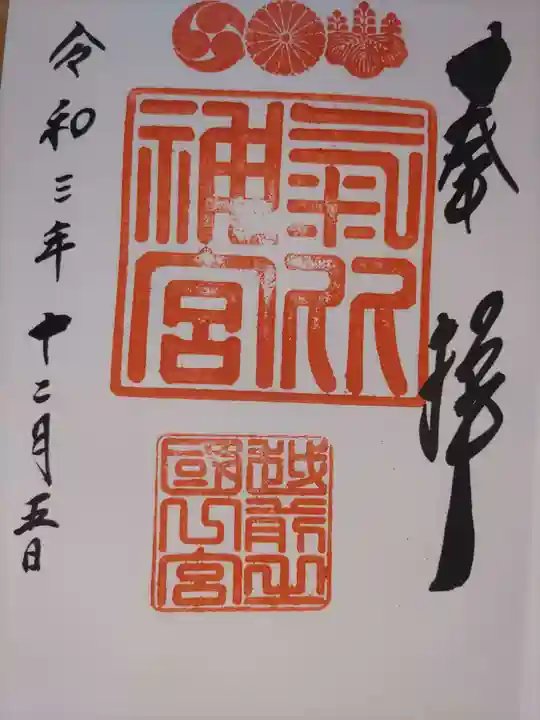 奉拝
氣比
神宮
越前之
國一宮
令和三年十二月五日